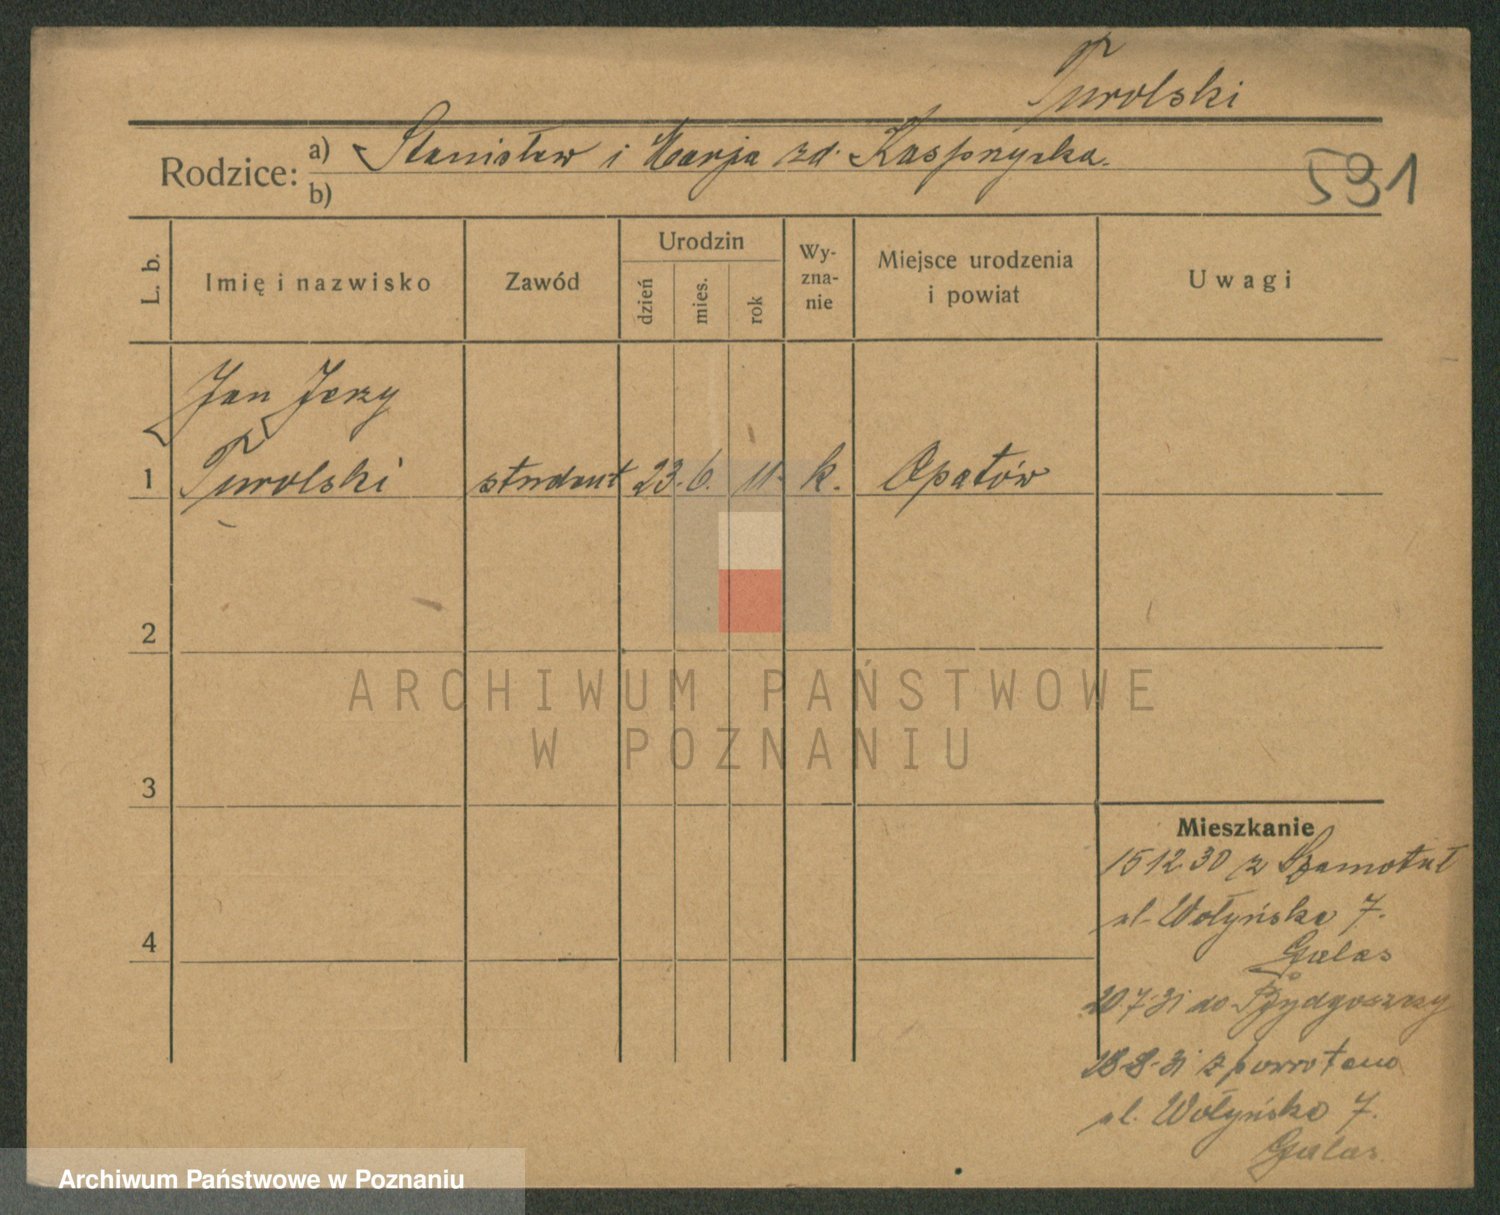 Turolski
Rodzice: a) Stanisław i Marja zd. Kasprzycka.
b)
591
L. b.
Imię i nazwisko
Zawód
Urodzin
dzień
mies.
rok
Wy-
zna-
nie
Miejsce urodzenia
i powiat
Uwagi
Jan Jerzy
1 Turolski student 23. 6. 11. k. Opatów
2
ARCHIWUM PAŃSTWOWE
W POZNANIU
3
Mieszkanie
15 12 30 z Szamotuł
ul. Wołyńska 7.
4
Galas
20.7.31 do Bydgoszczy
28.8.31 z powrotem
ul. Wołyńska 7.
Galas
Archiwum Państwowe w Poznaniu